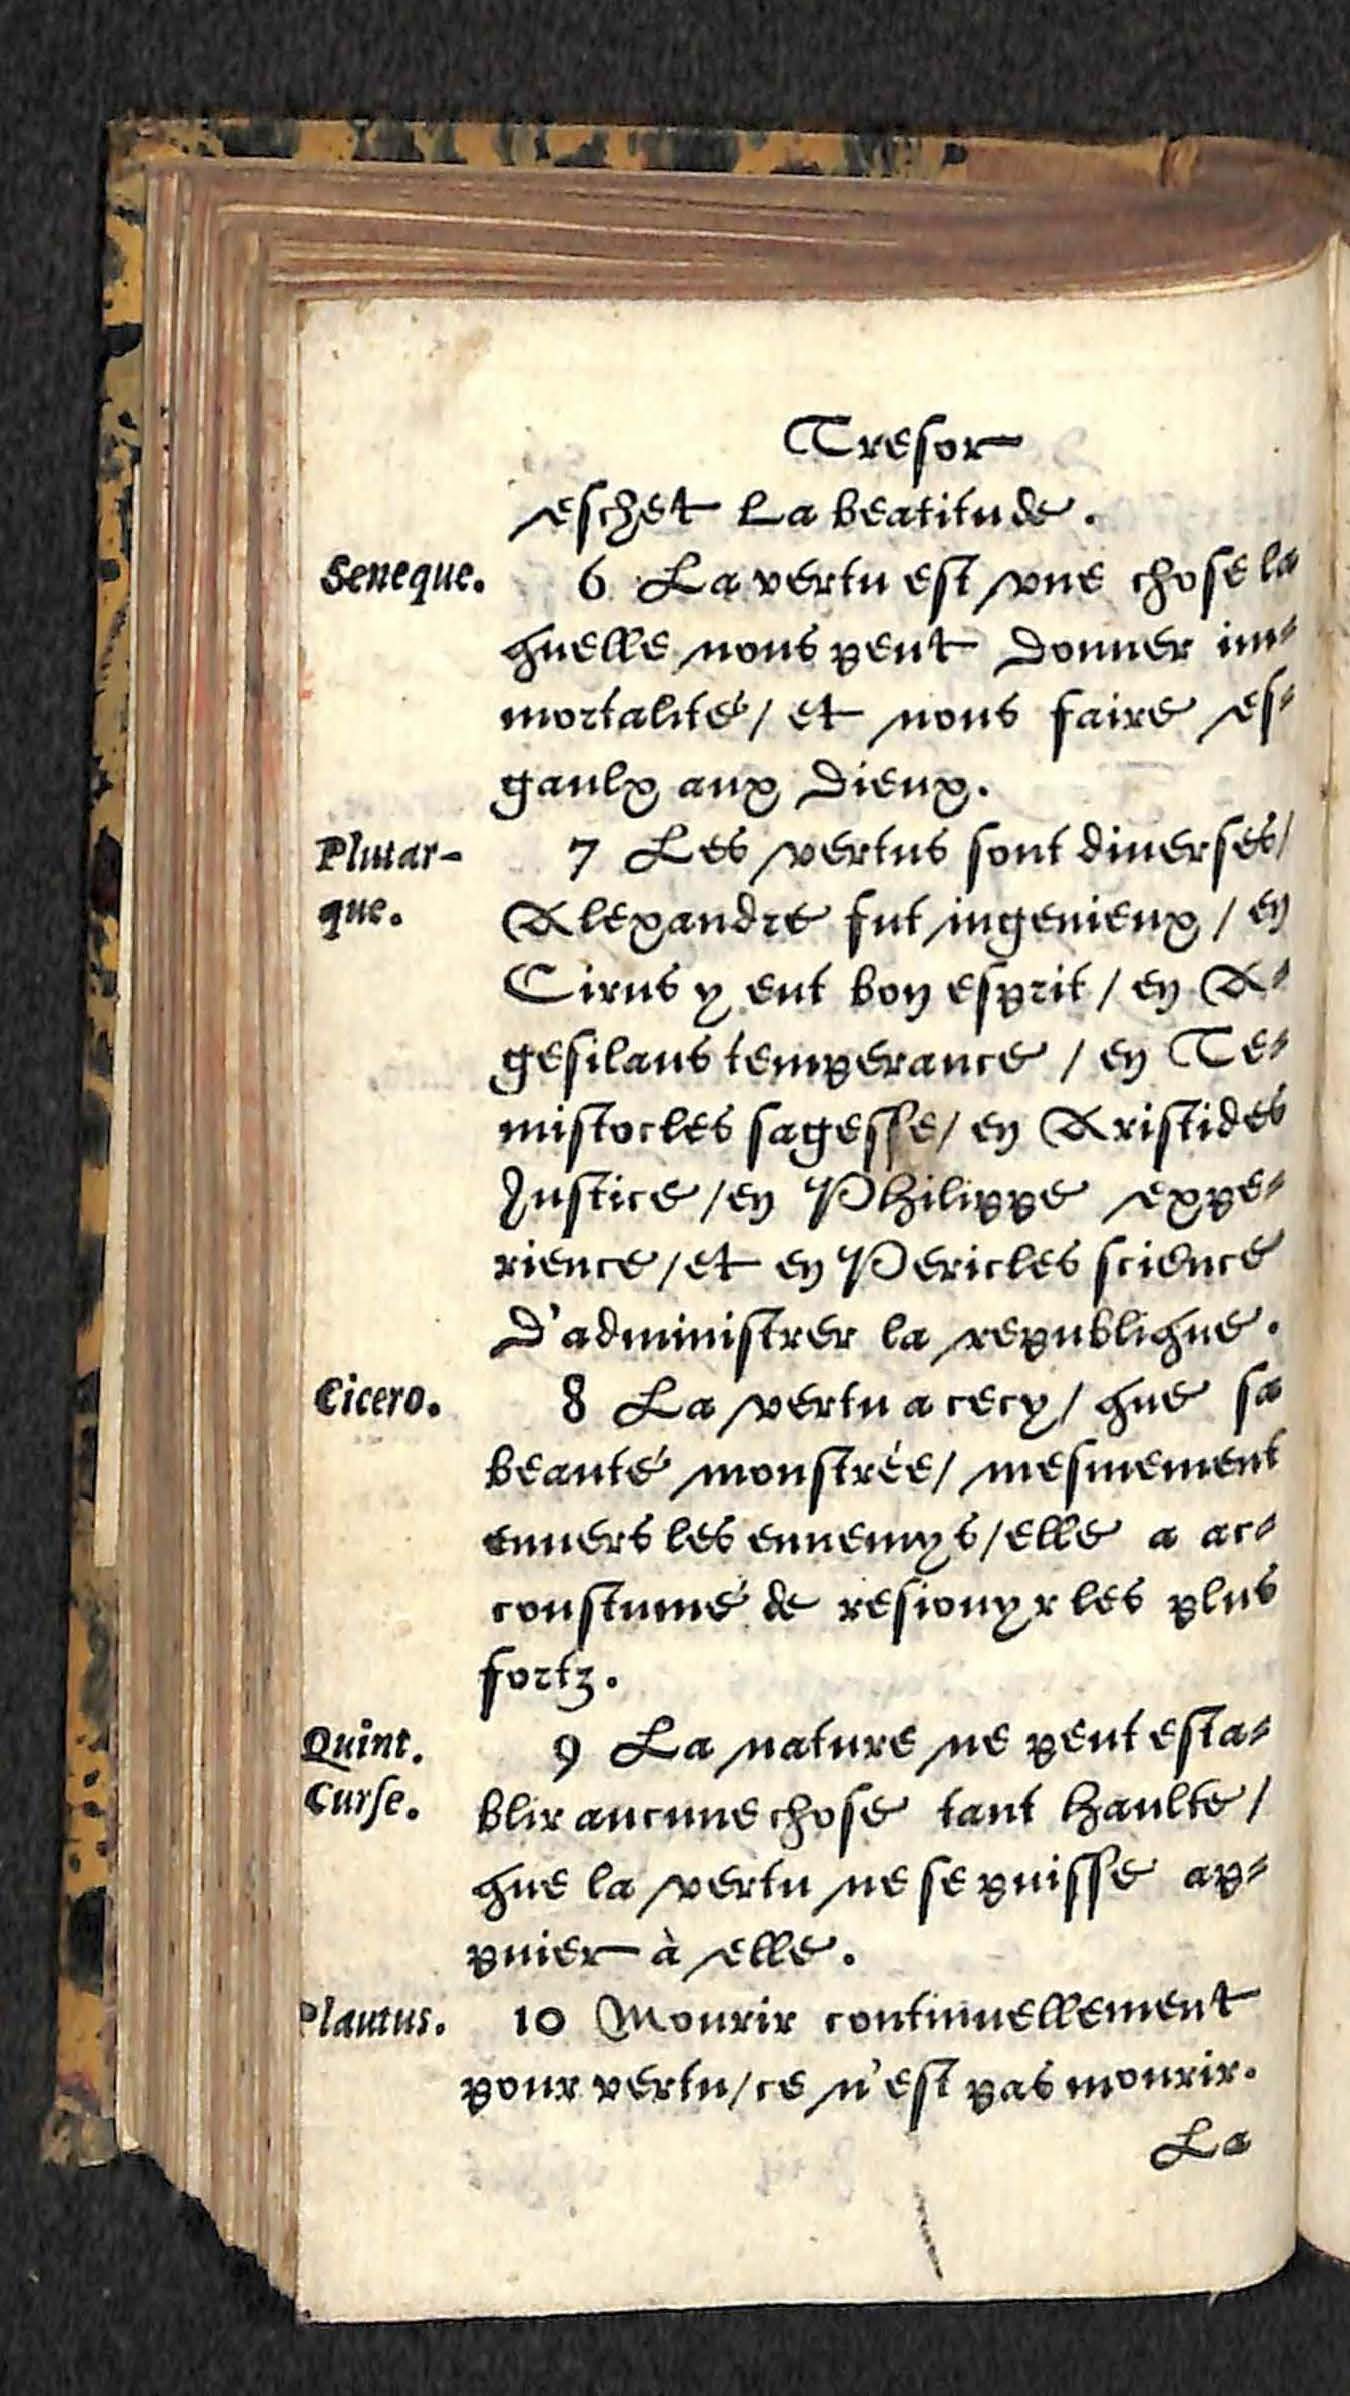 Tresor
eschet la beatitude.
Seneque. 6 La vertu est vne chose la
quelle nous peut donner im-
mortalité/ et nous faire es-
gaulx aux dieux.
Plutar- 7 Les vertus sont diuerses/
que. Alexandre fut ingenieux/ en
Cirus y eut bon esprit/ en A-
gesilaus temperance/ en Te-
mistocles sagesse/ en Aristides
Justice/ en Philippe expe-
rience/ et en Pericles science
d'administrer la republique.
Cicero. 8 La vertu a cecy/ que sa
beauté monstrée/ mesmement
enuers les ennemys/ elle a ac-
coustumé de resiouyr les plus
fortz.
Quint. 9 La nature ne peut esta-
Curse. blir aucune chose tant haulte/
que la vertu ne se puisse ap-
puier à elle.
Plautus. 10 Mourir continuellement
pour vertu/ ce n'est pas mourir.
La